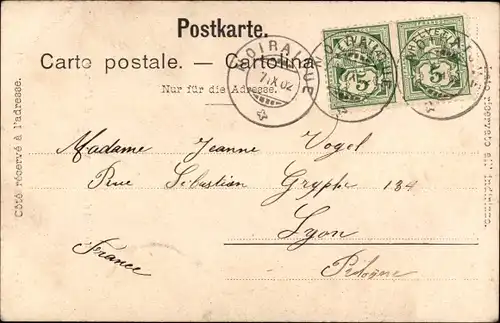 Postkarte.
Carte postale. — Cartolina
Nur für die Adresse.
NOIRAIGUE
7 IX 02
NOIRAIGUE
NOIRAIGUE
HELVETIA
5
5
Côté réservé à l'adresse.
Madame Jeanne Vogel
Rue Sébastian Gryphe 184
Lyon
France